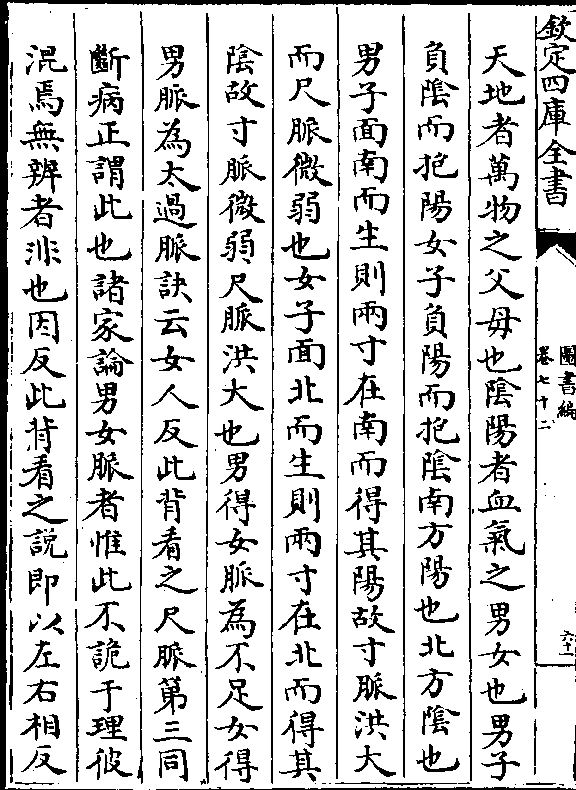 欽定四庫全書
圖書編
卷七十二
六十一
天地者萬物之父母也陰陽者血氣之男女也男子
負陰而抱陽女子負陽而抱陰南方陽也北方陰也
男子面南而生則兩寸在南而得其陽故寸脈洪大
而尺脈微弱也女子面北而生則兩寸在北而得其
陰故寸脈微弱尺脈洪大也男得女脈為不足女得
男脈為太過脈訣云女人反此背看之尺脈第三同
斷病正謂此也諸家論男女脈者惟此不詭于理彼
混焉無辨者非也因反此背看之說即以左右相反